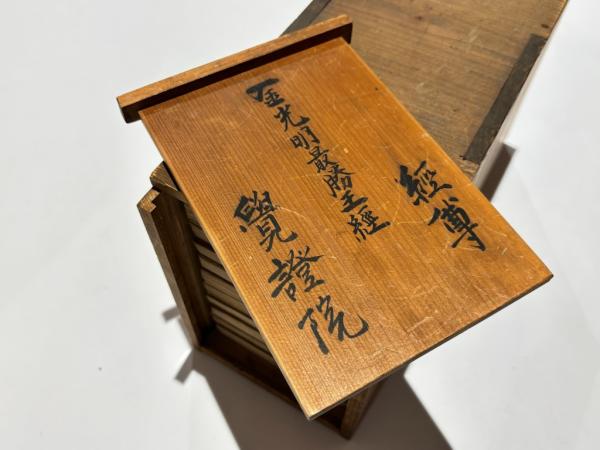 經博
金光明最勝王經
覺證院